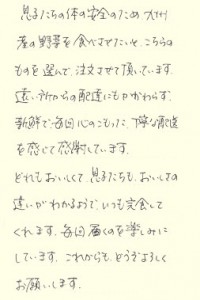 息子たちの体の安全のため、九州
産の野菜を食べさせたいと、こちらの
ものを選んで、注文させて頂いています。
遠い所からの配達にもかかわらず、
新鮮で毎回心のこもった、丁寧な配送
を感じて感謝しています。
どれもおいしくて、息子たちも、おいしさの
違いがわかるようで、いつも完食して
くれます。毎回届くのを楽しみに
しています。これからも、どうぞよろしく
お願いします。